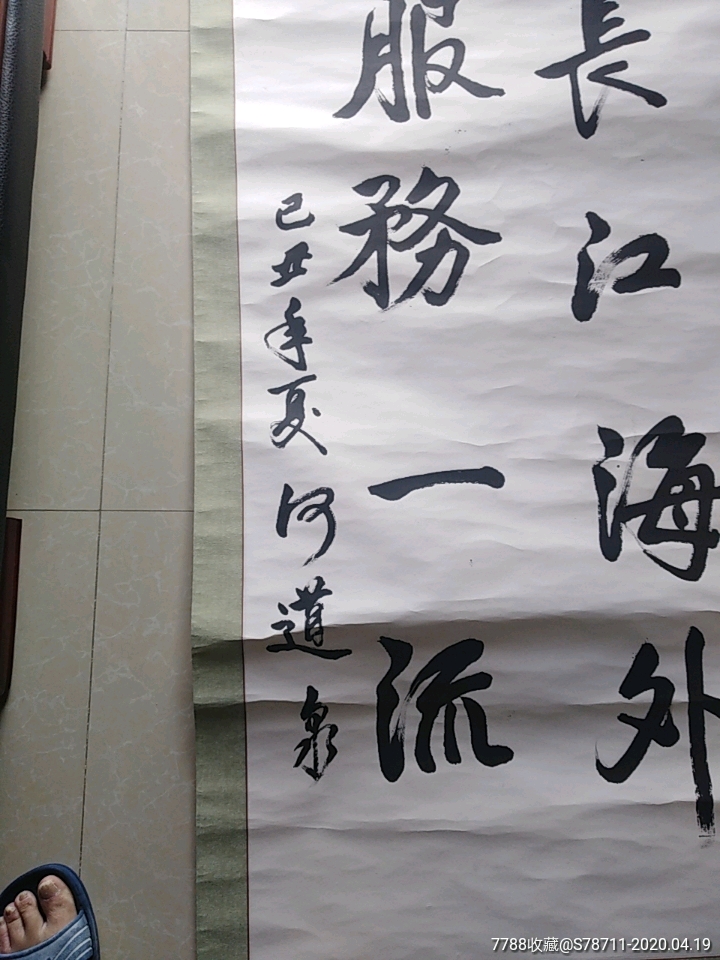 長江海外
服務一流
己丑年夏何道泉
7788收藏@S78711-2020.04.19